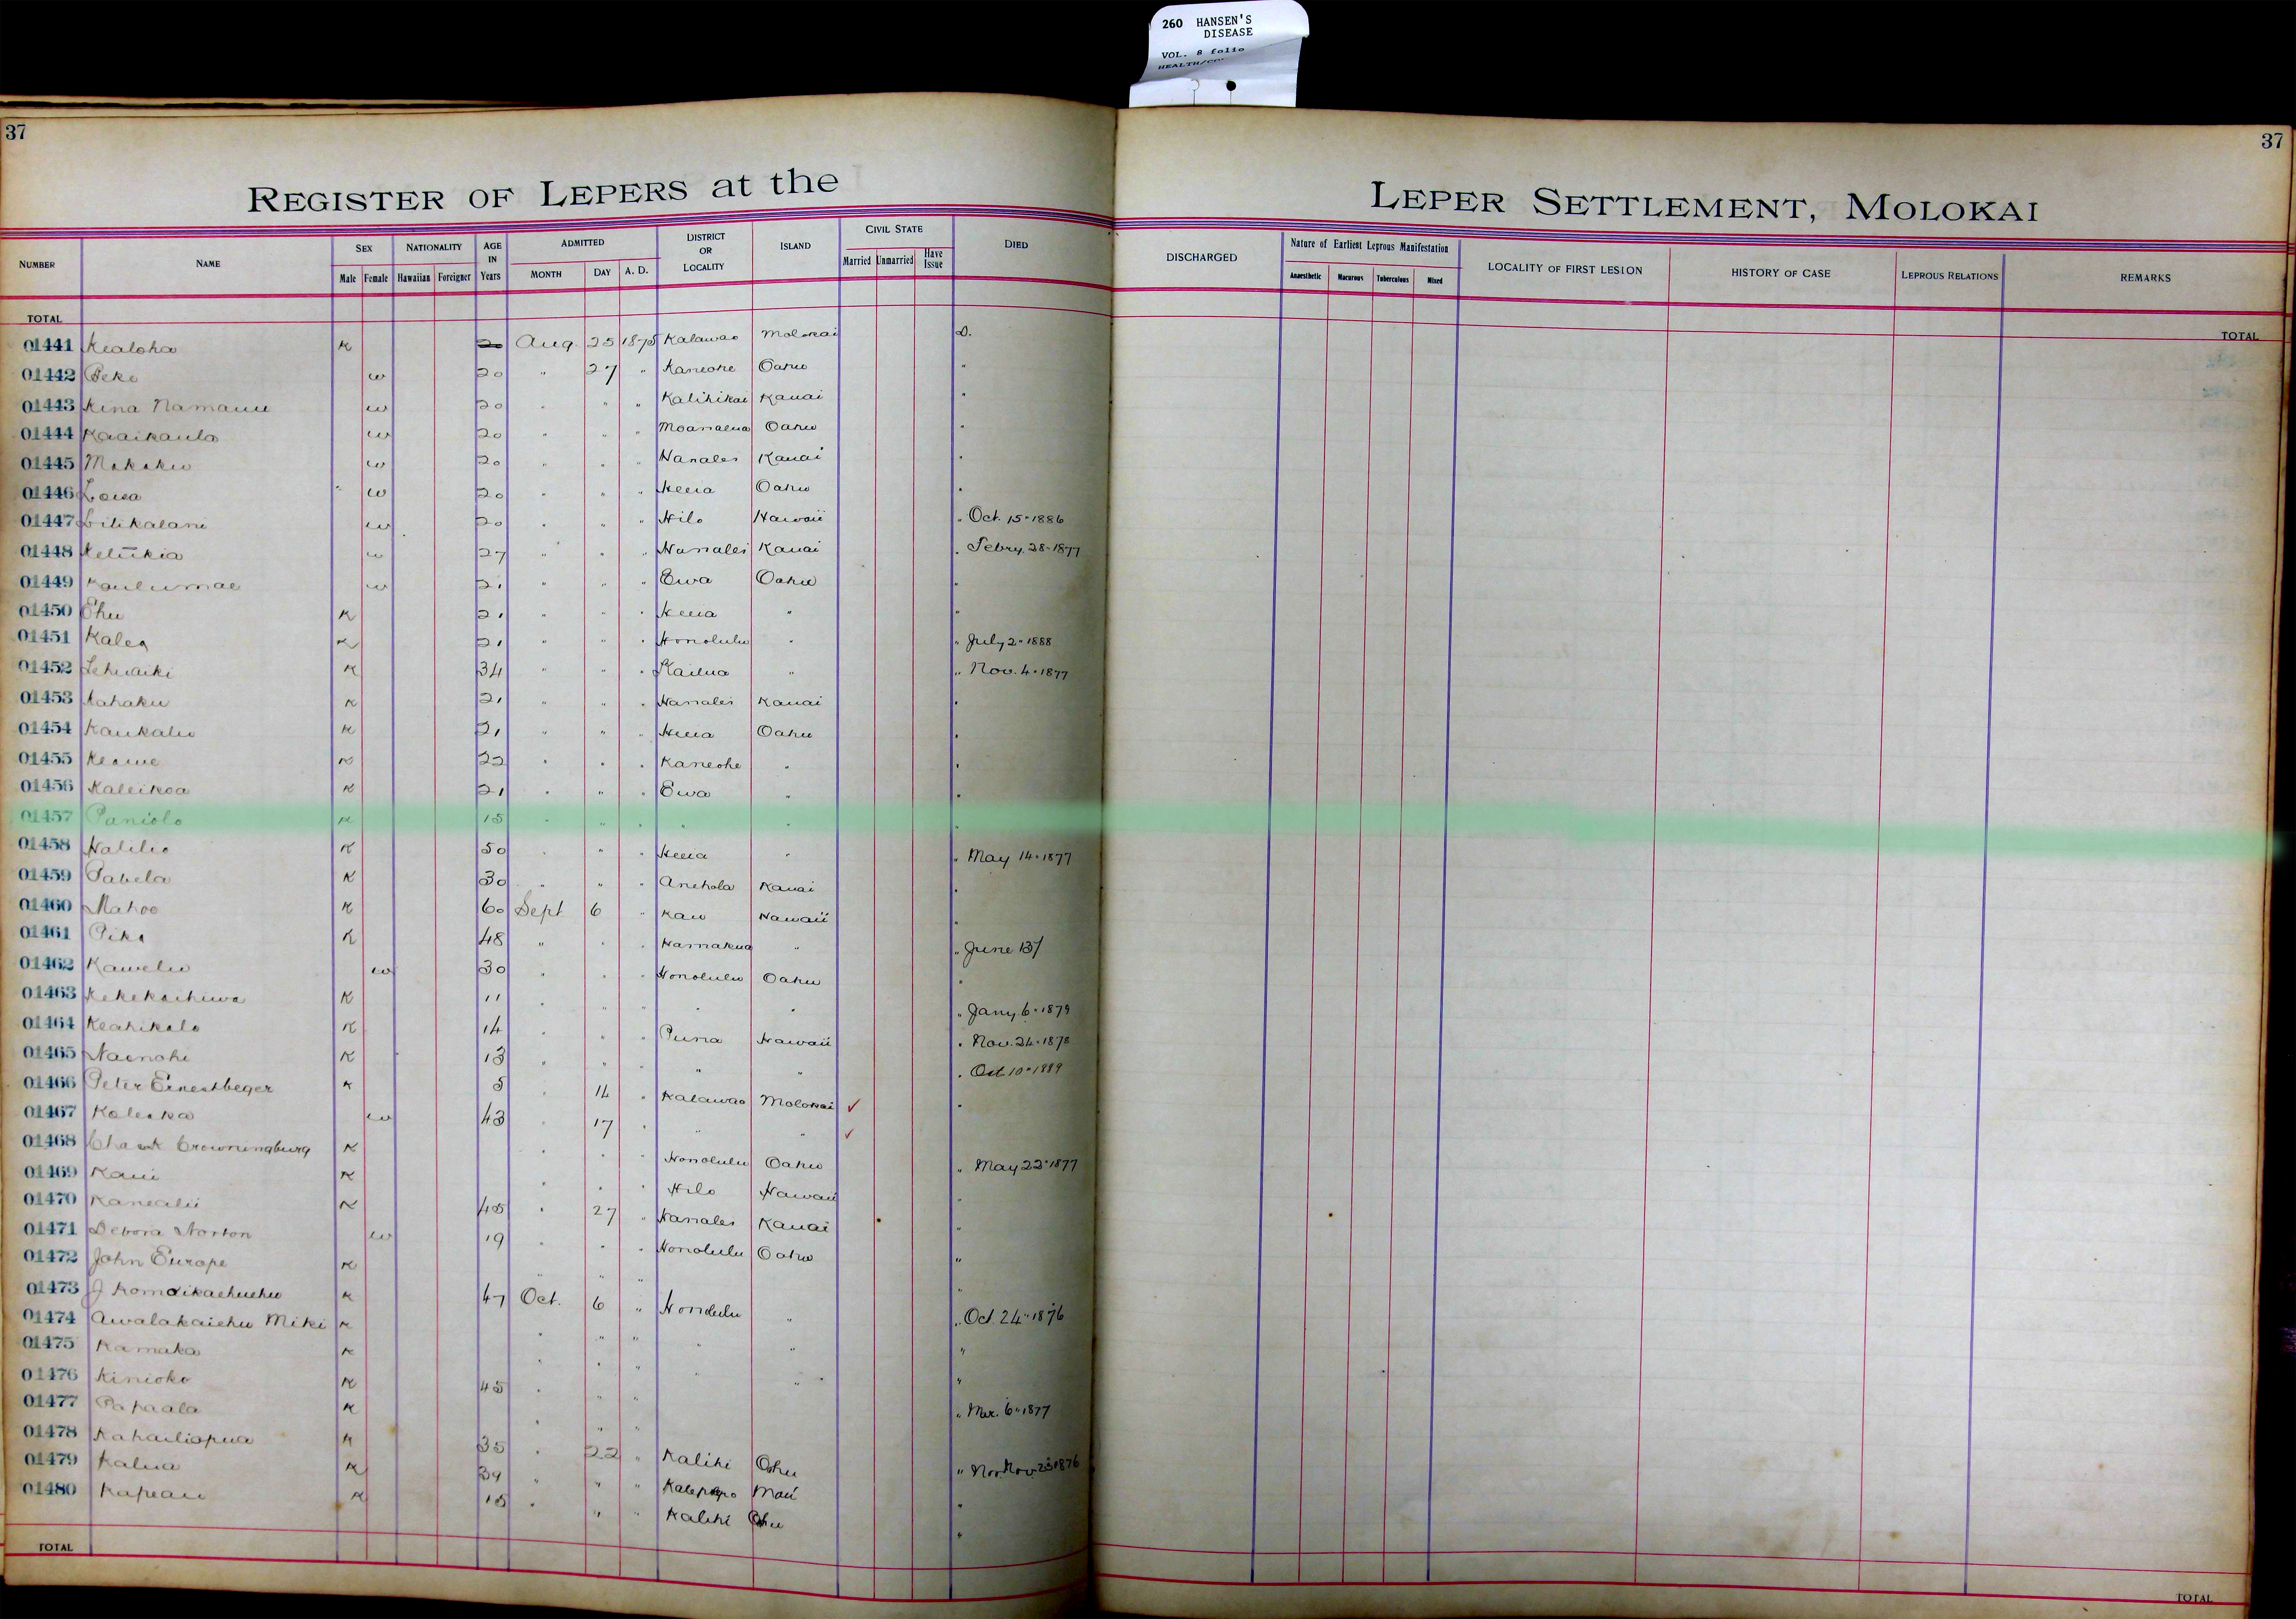 260 HANSEN'S
DISEASE
VOL. 8 folio
37
37
REGISTER OF LEPERS at the
LEPER SETTLEMENT, MOLOKAI
NUMBER NAME SEX Male Female NATIONALITY Hawaiian Foreigner AGE IN Years ADMITTED MONTH DAY A. D. DISTRICT OR LOCALITY ISLAND CIVIL STATE Married Unmarried Have Issue DIED
DISCHARGED Nature of Earliest Leprous Manifestation Anaesthetic Macurous Tuberculous Mixed LOCALITY OF FIRST LESION HISTORY OF CASE LEPROUS RELATIONS REMARKS
TOTAL
TOTAL
01441 Kealoha K 20 Aug. 25 1875 Kalawao Molokai D.
01442 Peke w 20 " 27 " Kaneohe Oahu "
01443 Kina Namauu w 20 " " " Kalihikai Kauai "
01444 Kaaikaula w 20 " " " Moanalua Oahu "
01445 w 20 " " " Hanalei Kauai "
01446 Loisa w 20 " " " Heeia Oahu "
01447 Lilikalani w 20 " " " Hilo Hawaii " Oct. 15 " 1886
01448 Keliikia w 27 " " " Hanalei Kauai " Febry. 28 " 1877
01449 Kaulumae w 21 " " " Ewa Oahu "
01450 Ehu K 21 " " " Heeia " "
01451 Kalea K 21 " " " Honolulu " " July 2 " 1888
01452 Lehuaiki K 34 " " " Kailua " " Nov. 4 " 1877
01453 Kahaku K 21 " " " Hanalei Kauai "
01454 Kaukaliu K 21 " " " Heeia Oahu "
01455 Keawe K 22 " " " Kaneohe " "
01456 Kaleikoa K 21 " " " Ewa " "
01457 Paniolo K 15 " " " " " "
01458 Halulu K 50 " " " Heeia " " May 14 " 1877
01459 Pabela K 30 " " " Anehola Kauai "
01460 Mahoe K 60 Sept 6 " Kau Hawaii "
01461 Pika K 48 " " " Hamakua " " June 13/
01462 Kawelu w 30 " " " Honolulu Oahu "
01463 Kekekaihiwa K 11 " " " " " " Jany. 6 " 1879
01464 Keahikalo K 14 " " " Puna Hawaii " Nov. 24 " 1878
01465 Nainohi K 13 " " " " " " Oct 10 " 1889
01466 Peter Ernestbeger K 5 " 14 " Kalawao Molokai ✓ "
01467 Kaleka w 43 " 17 " " " ✓
01468 Crowningburg K " " " Honolulu Oahu " May 22 " 1877
01469 Kaui K " " " Hilo Hawaii "
01470 Kanealii K 45 " 27 " Hanalei Kauai "
01471 Debora Norton w 19 " " " Honolulu Oahu "
01472 John Europe K " " " "
01473 J Komoikaehuehu K 47 Oct. 6 " Honolulu " " Oct. 24 " 1876
01474 Awalakaiehu Miki K " " " " " "
01475 Kamaka K " " " " " "
01476 Kinioko K 45 " " " " Mar. 6 " 1877
01477 Papaala K " " "
01478 Kahailiopua K 35 " 22 " Kalihi Oahu " Nov. 23 1876
01479 Kalua K 39 " " " Kalepolepo Maui "
01480 Kapeau K 15 " " " Kalihi Oahu "
TOTAL
TOTAL